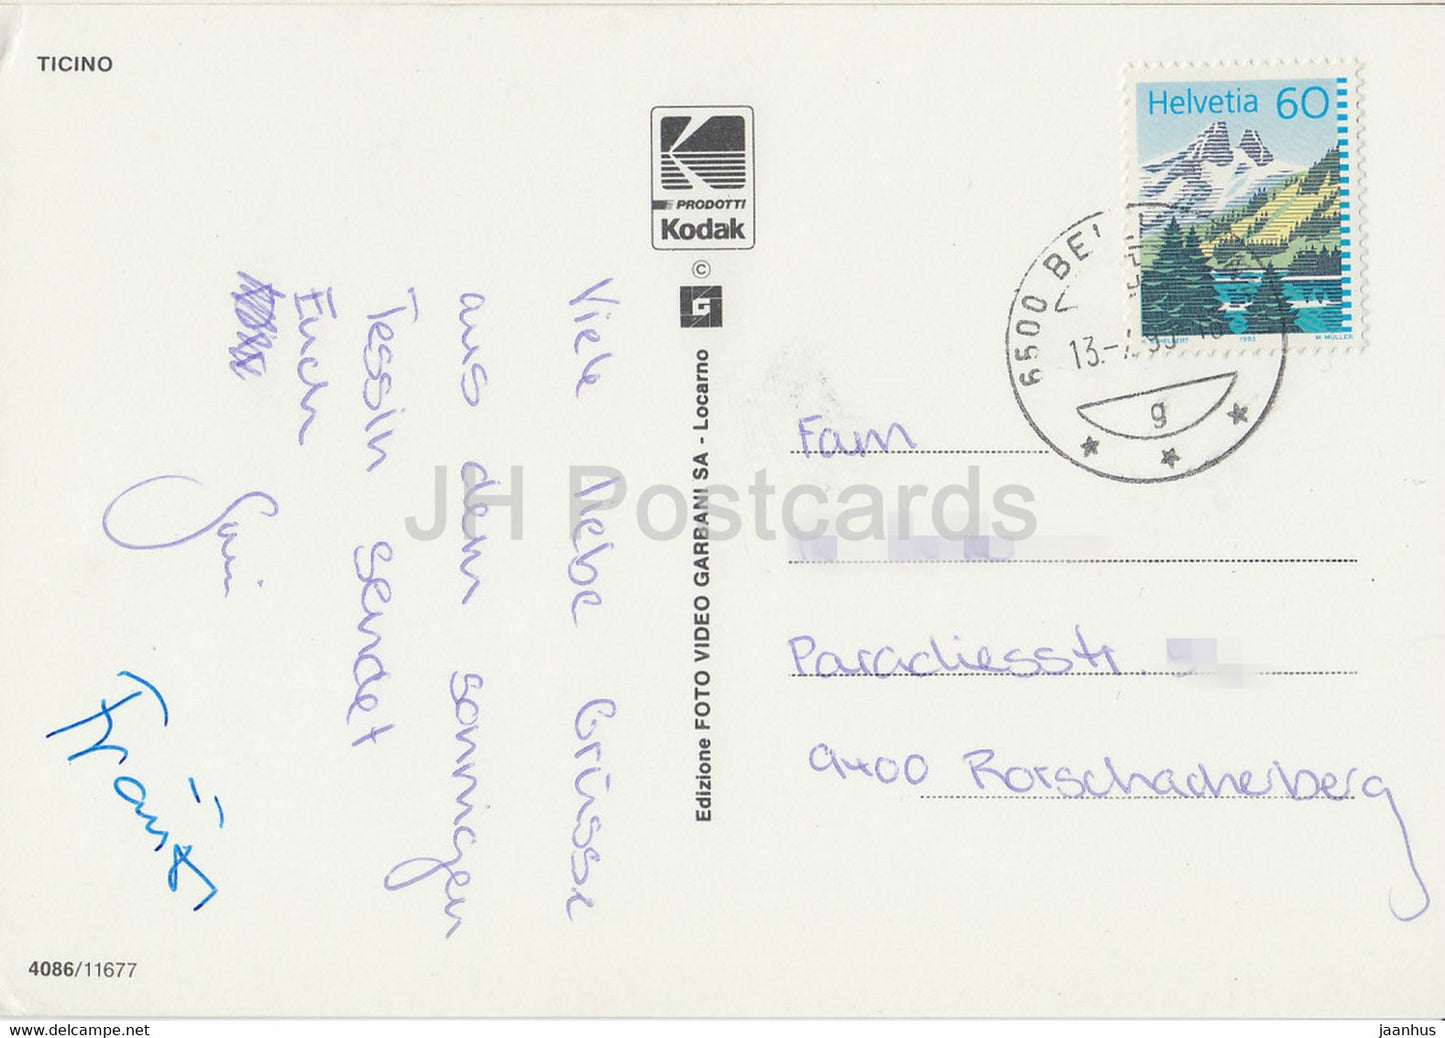 TICINO
Helvetia 60
1993
M. MÜLLER
6500 BE
13.
g
PRODOTTI
Kodak
©
G
Edizione FOTO VIDEO GARBANI SA - Locarno
Viele liebe Grüsse
aus dem sonnigen
Tessin sendet
Euch
Fam
Paradiesstr.
9400 Rorschacherberg
JH Postcards
4086/11677
www.delcampe.net
jaanhus